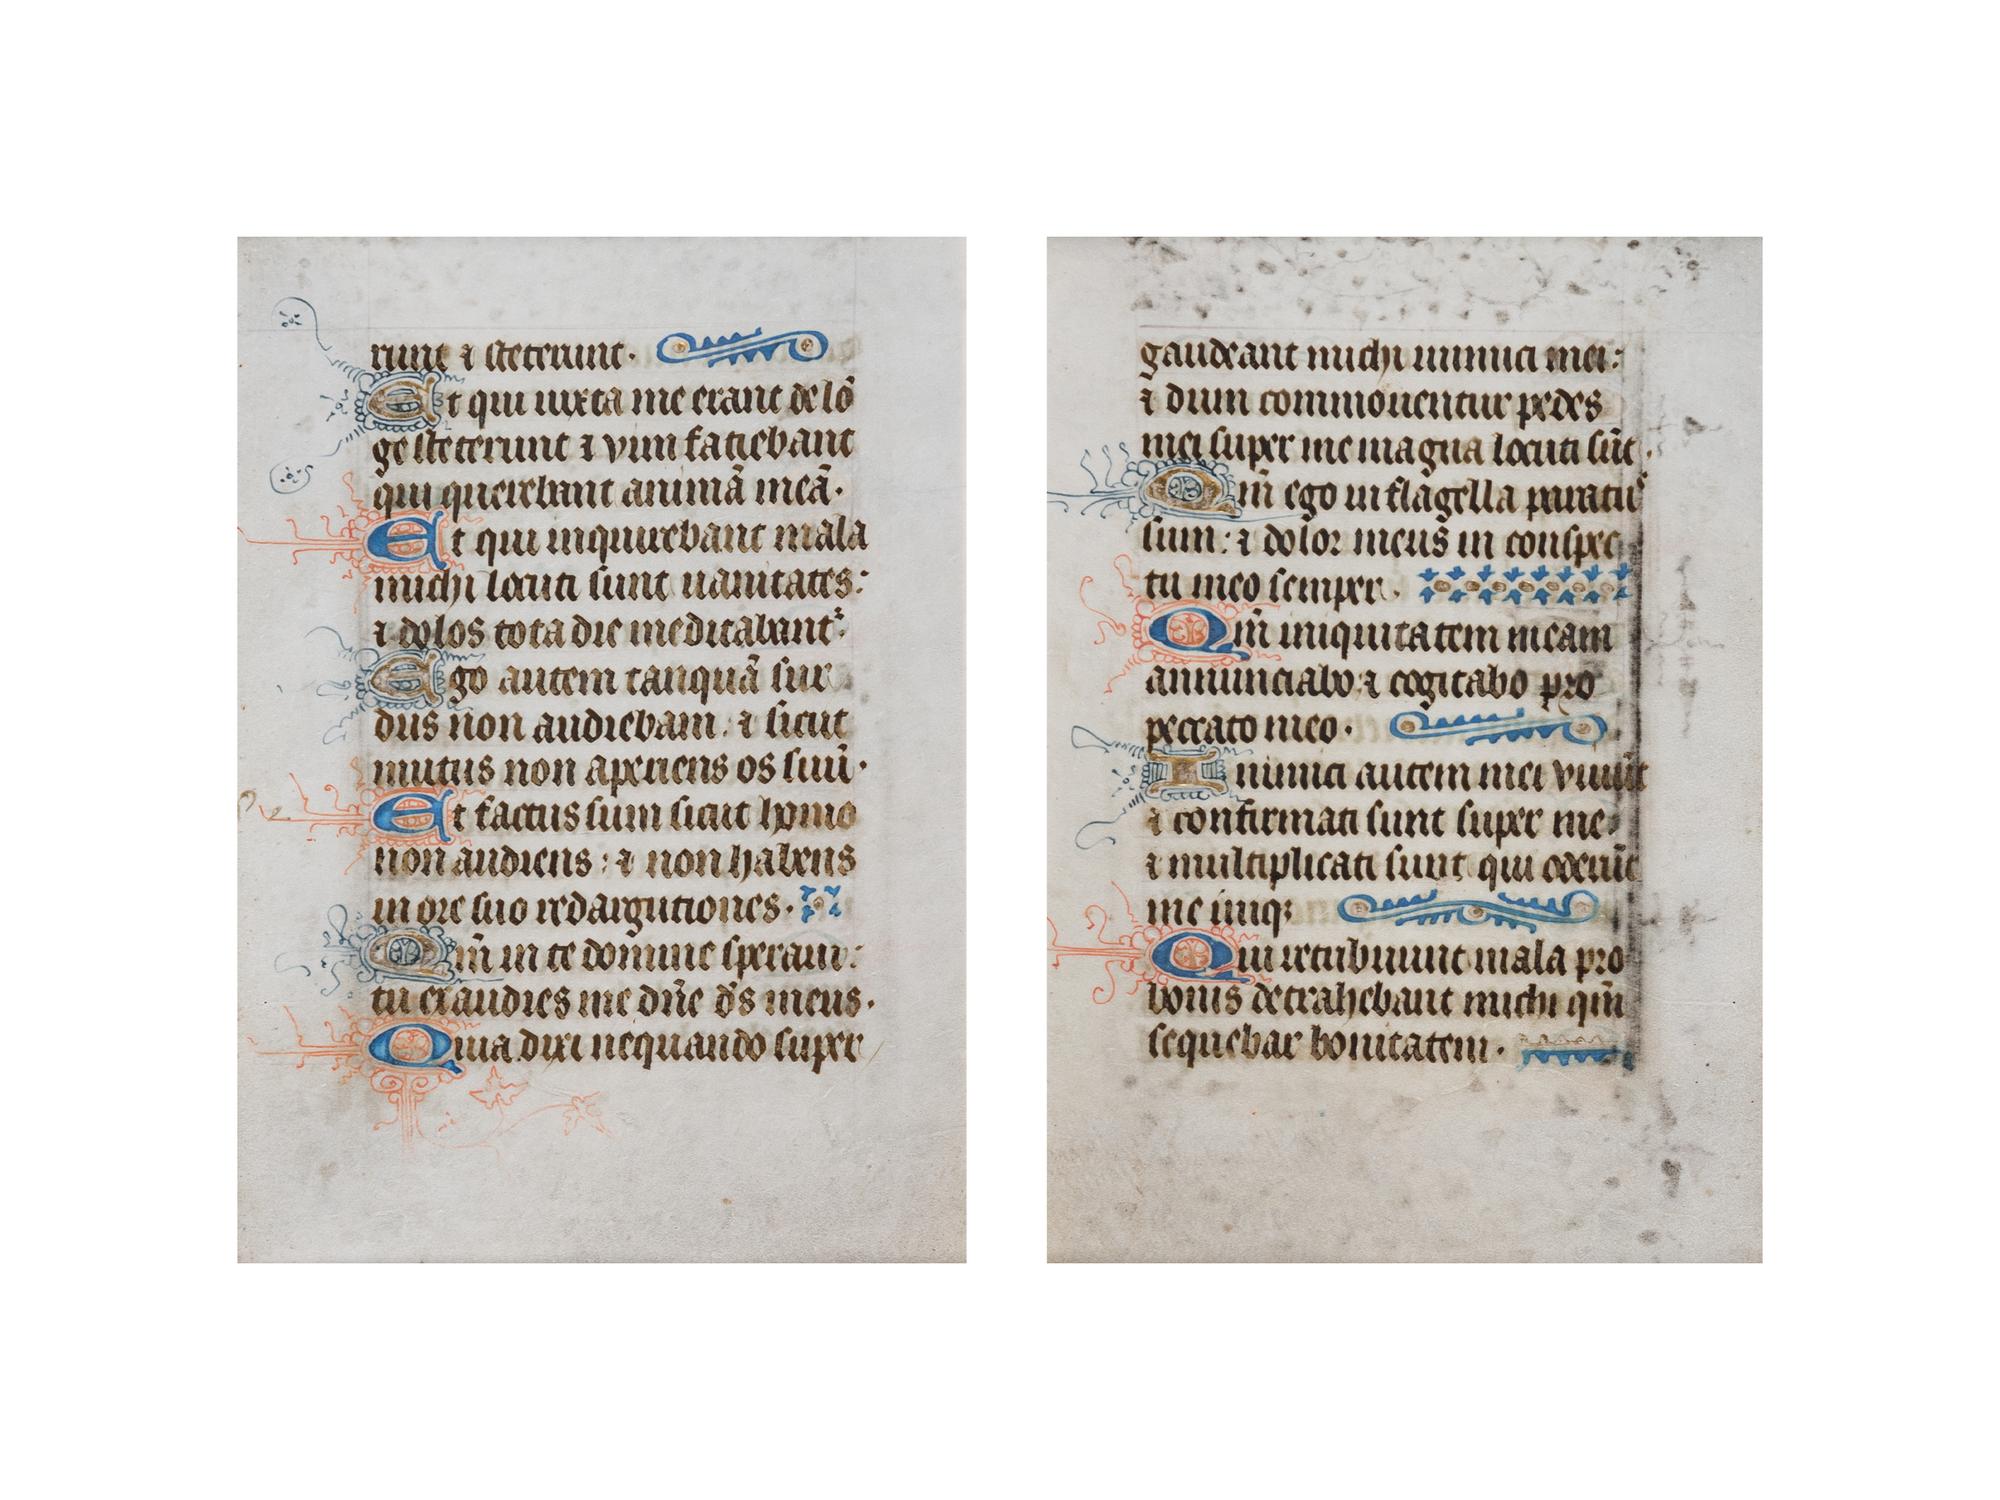 runt ⁊ steterunt·
Et qui iuxta me erant de lō
ge steterunt ⁊ vim fatiebant
qui querebant animā meā·
Et qui inquirebant mala
michi locuti sunt uanitates:
⁊ dolos tota die meditabant᷑:
Ego autem tanquā sur
dus non audiebam: ⁊ sicut
mutus non aperiens os suū·
Et factus sum sicut homo
non audiens: ⁊ non habens
in ore suo redargutiones·
Qm̄ in te domine speraui:
tu exaudies me dn̄e d̄s meus·
Quia dixi nequando super
gaudeant michi inimici mei:
⁊ dum commouentur pedes
mei super me magna locuti sūt·
Qm̄ ego in flagella paratus
sum: ⁊ dolor meus in conspec
tu meo semper·
Qm̄ iniquitatem meam
annunciabo: ⁊ cogitabo pro
peccato meo·
Inimici autem mei viuūt
⁊ confirmati sunt super me:
⁊ multiplicati sunt qui oderūt
me iniqꝫ
Qui retribuunt mala pro
bonis detrahebant michi qm̄
sequebar bonitatem·